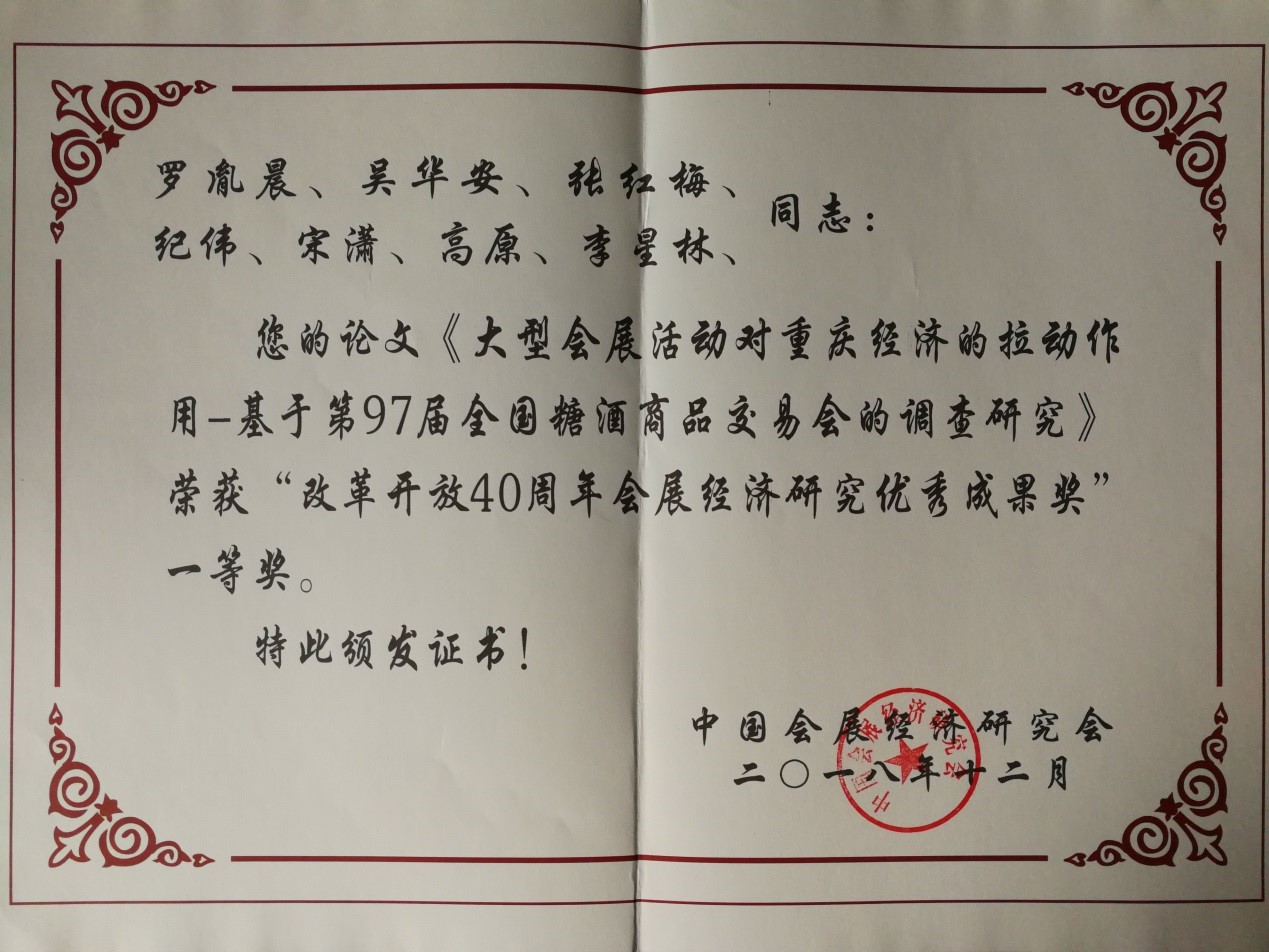 罗胤晨、吴华安、张红梅、
纪伟、宋潇、高原、李星林、
同志：
您的论文《大型会展活动对重庆经济的拉动作
用-基于第97届全国糖酒商品交易会的调查研究》
荣获“改革开放40周年会展经济研究优秀成果奖”
一等奖。
特此颁发证书！
中国会展经济研究会
二〇一八年十二月
中国会展经济研究会